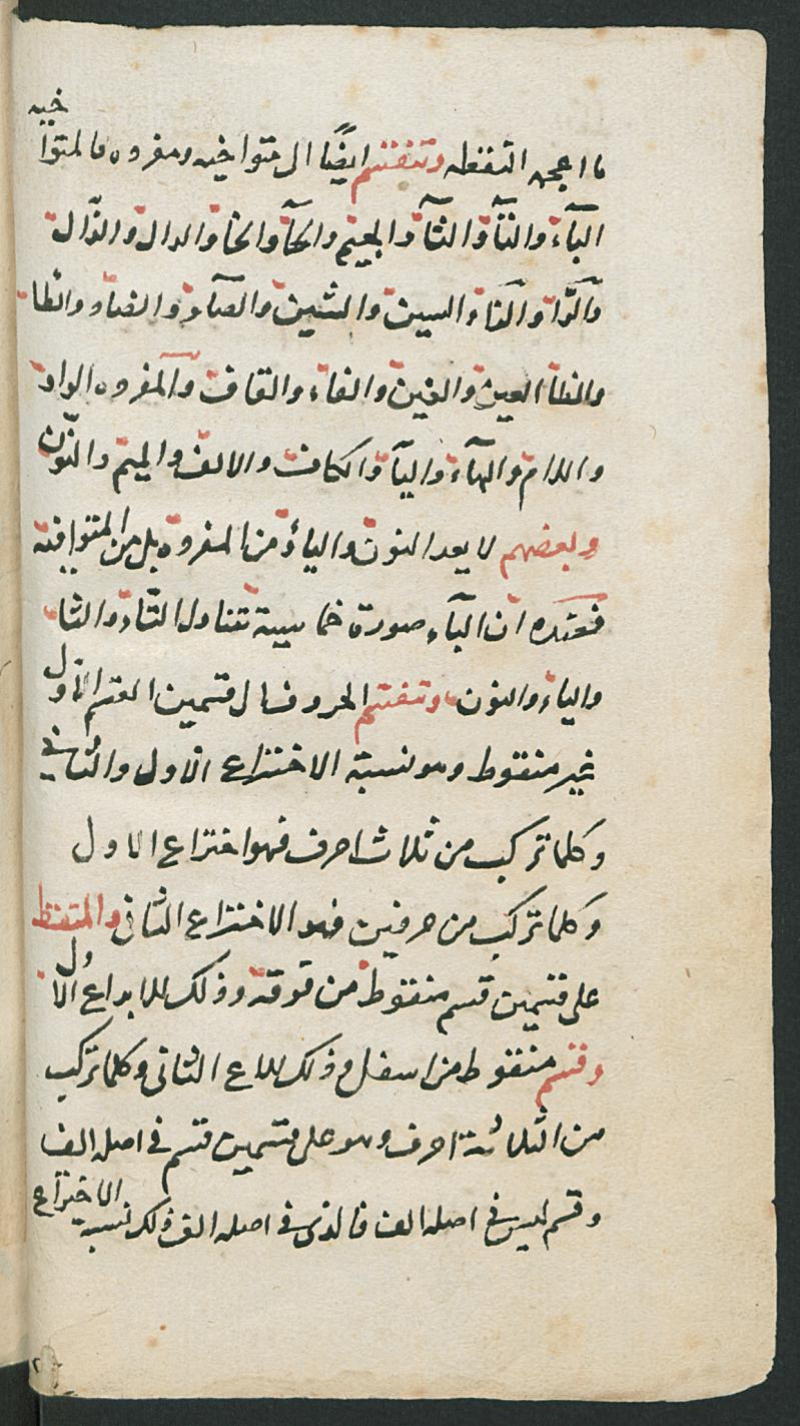 ما اعجمه النقطه وتنقسم ايضًا الى متواخيه ومفروه فالمتواخيه
الباء والتآء والثآء والجيم والحآء والخاء والدال والذال
والرّا والزاء السين والشين والصاد والضاد والطا
والظا العين والغين والفاء والقاف والمفروه الواو
واللام والهآء واليآء والكاف والالف والميم والنون
وبعضهم لا يعد النون والياء من المفروه بل من المتوافية
فعنده ان البآء صورة خماسية تتناول التاء والثا
والياء والنون وتنقسم الحروف الى قسمين القسم الاول
غير منقوط وهو نسبة الاختراع الاول والثاني
وكلما تركب من ثلاث احرف فهو اختراع الاول
وكلما تركب من حرفين فهو الاختراع الثاني والمتنقط
على قسمين قسم منقوط من فوقه وذلك للابداع الاول
وقسم منقوط من اسفل وذلك للاع الثاني وكلما تركب
من الثلاثة احرف وهو على قسمين قسم في اصله الف
وقسم ليس في اصله الف فالذي في اصله الف ذلك نسبه الاختراع